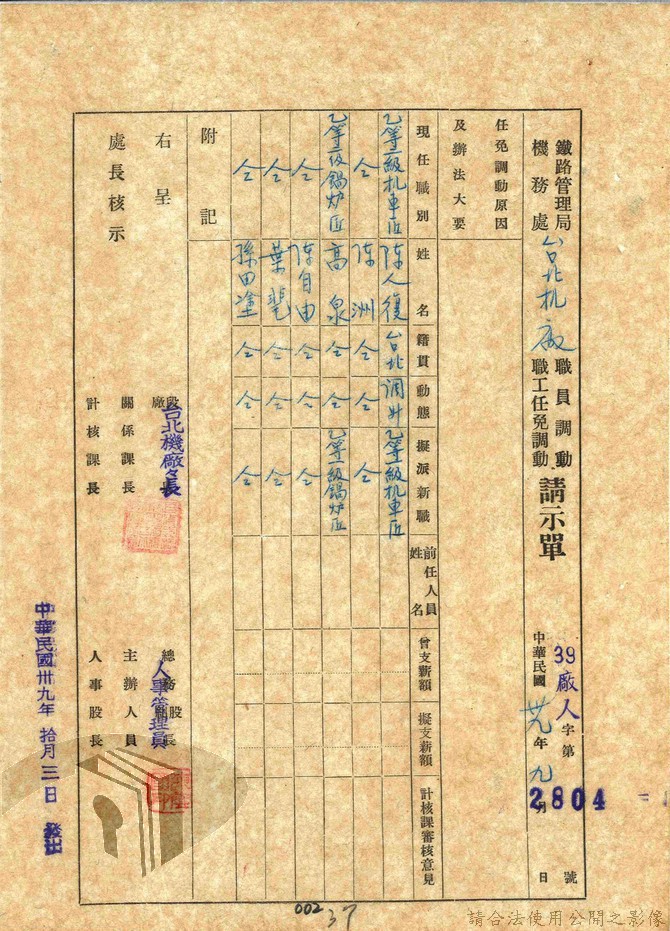 鐵路管理局
機務處
台北机廠
職員調動
職工任免調動
請示單
39廠人字第2804號
中華民國卅九年九月 日
任免調動原因
及辦法大要
現任職別 姓名 籍貫 動態 擬派新職 前任人員姓名 曾支薪額 擬支薪額 計核課審核意見
乙等級机車匠 陳人復 台北 調升 乙等級机車匠
仝 陳洲 仝 仝 仝
乙等級鍋炉匠 高泉 仝 仝 乙等級鍋炉匠
仝 陳自由 仝 仝 仝
仝 葉 仝 仝 仝
仝 孫田塗 仝 仝 仝
附記
右呈
處長核示
段廠長
台北機廠廠長
關係課長
計核課長
總務股長
人事管理員
主辦人員
人事股長
中華民國卅九年拾月三日發出
002
37
請合法使用公開之影像